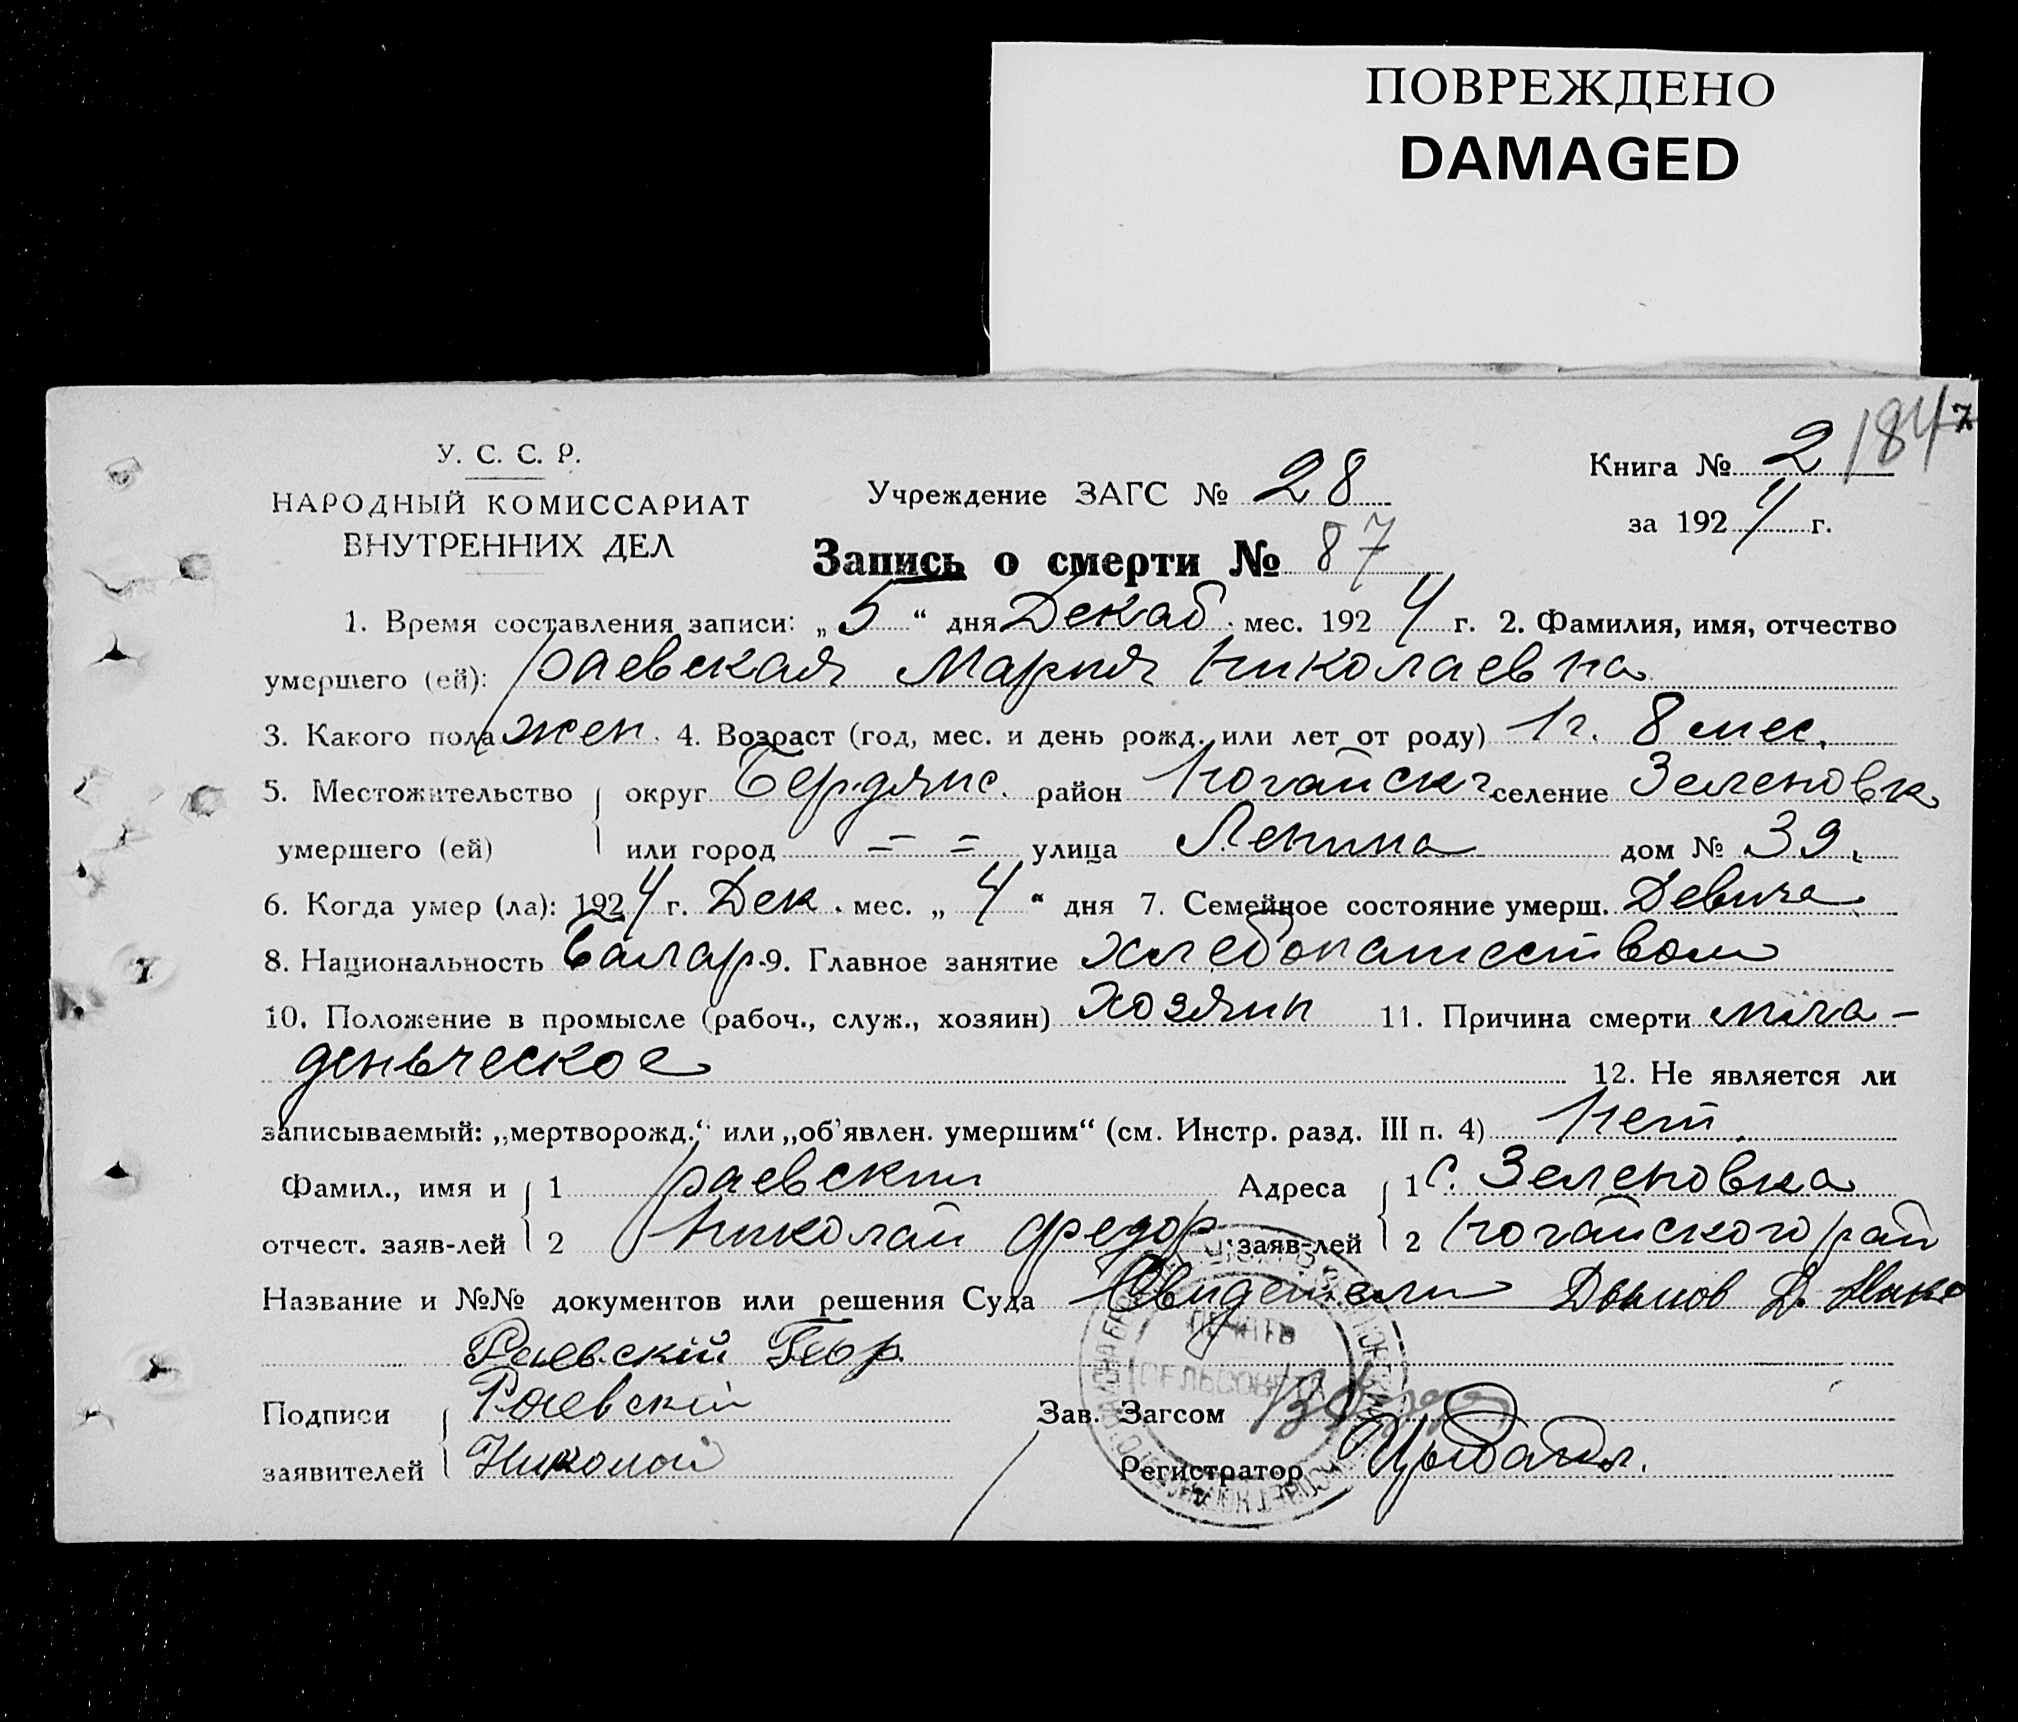 ПОВРЕЖДЕНО
DAMAGED
У. С. С. Р.
НАРОДНЫЙ КОМИССАРИАТ
ВНУТРЕННИХ ДЕЛ
Учреждение ЗАГС № 28
Книга № 2 184
за 1924 г.
Запись о смерти № 87
1. Время составления записи: „5“ дня Декаб. мес. 1924 г. 2. Фамилия, имя, отчество
умершего (ей): Раевская Мария Николаевна
3. Какого пола жен. 4. Возраст (год, мес. и день рожд. или лет от роду) 1 г. 8 мес.
5. Местожительство округ Бердянс. район Ногайск селение Зеленовк
умершего (ей) или город = = улица Ленина дом № 39.
6. Когда умер (ла): 1924 г. Дек. мес. „4“ дня 7. Семейное состояние умерш. Девица
8. Национальность Балгар. 9. Главное занятие хлебопашеством
10. Положение в промысле (рабоч., служ., хозяин) хозяин 11. Причина смерти мла-
деньческое 12. Не является ли
записываемый: „мертворожд.“ или „об'явлен. умершим“ (см. Инстр. разд. III п. 4) Нет.
Фамил., имя и 1 Раевский Адреса 1 с. Зеленовка
отчест. заяв-лей 2 Николай Федор. заяв-лей 2 Ногайского рай
Название и №№ документов или решения Суда Свидетели Дынов Д. Нико
Раевскій Геор.
Подписи Раевскій Зав. Загсом
заявителей Николай Регистратор
ПЕЧАТЬ
СЕЛЬСОВЕТА